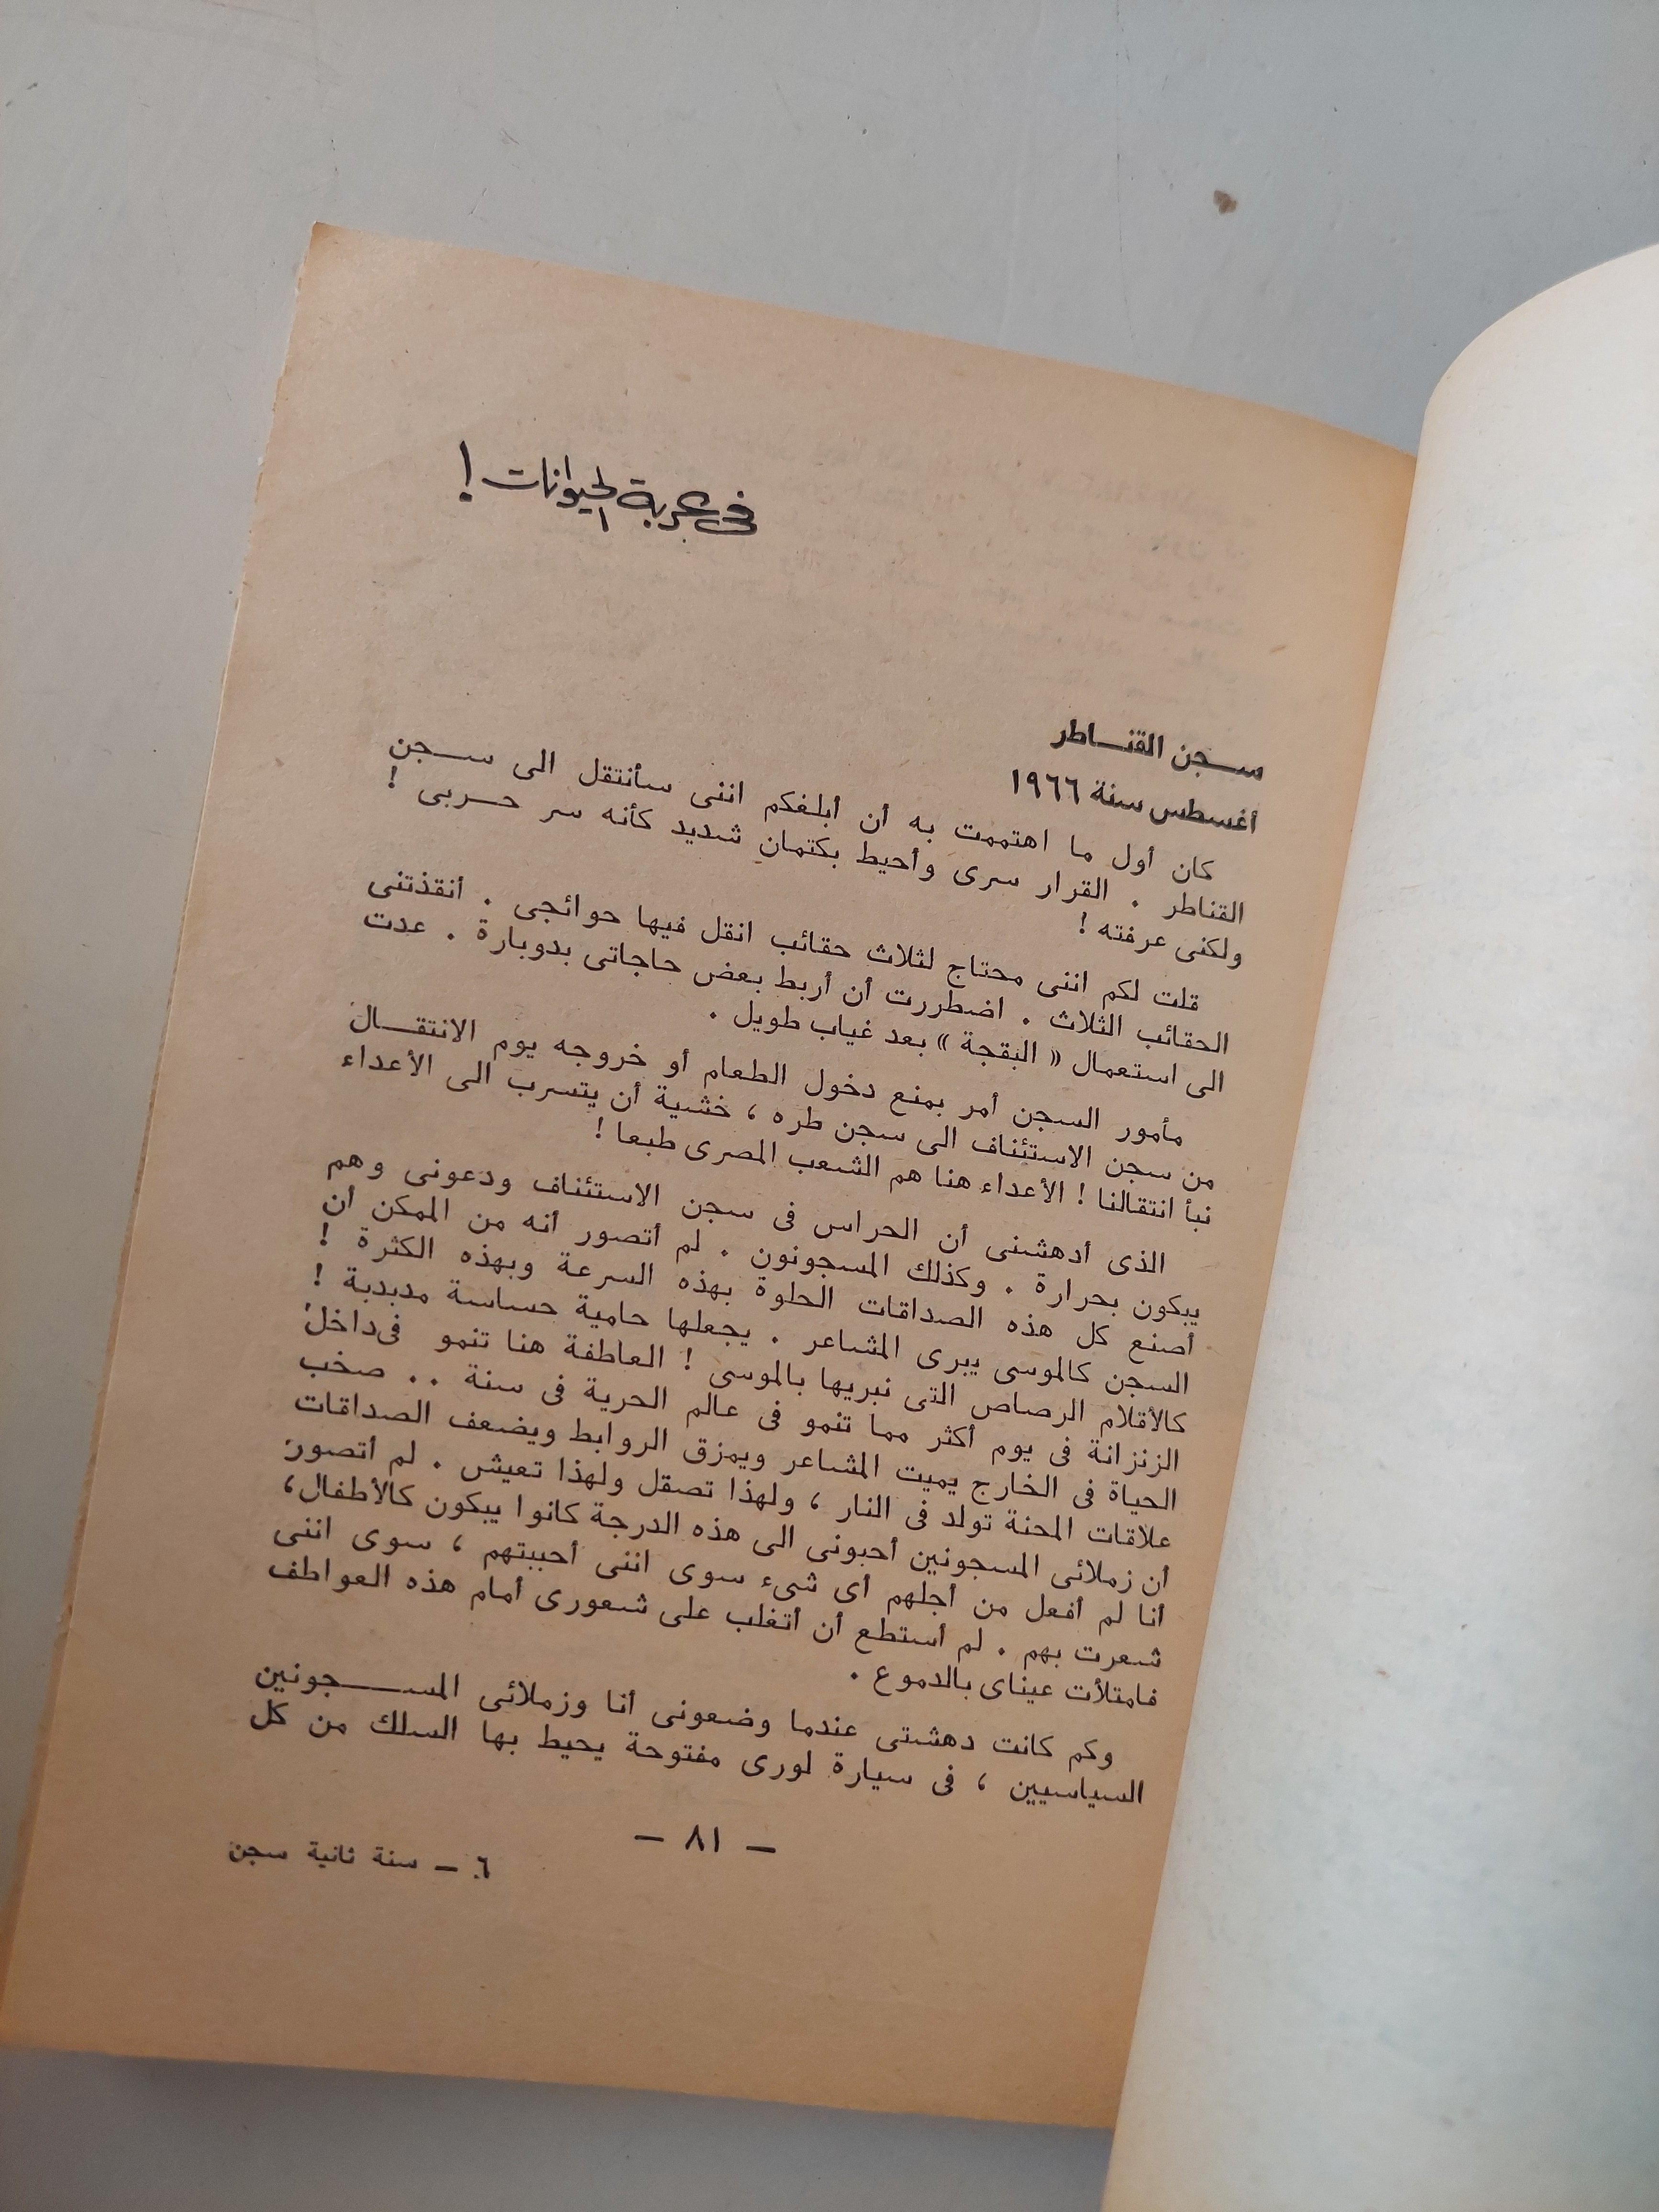 فى عربة الحيوانات !
سجن القناطر
أغسطس سنة ١٩٦٦
كان أول ما اهتممت به أن أبلغكم اننى سأنتقل الى سجن
القناطر . القرار سرى وأحيط بكتمان شديد كأنه سر حربى !
ولكنى عرفته !
قلت لكم اننى محتاج لثلاث حقائب انقل فيها حوائجى . أنقذتنى
الحقائب الثلاث . اضطررت أن أربط بعض حاجاتى بدوبارة . عدت
الى استعمال « البقجة » بعد غياب طويل .
مأمور السجن أمر بمنع دخول الطعام أو خروجه يوم الانتقال
من سجن الاستئناف الى سجن طره ، خشية أن يتسرب الى الأعداء
نبأ انتقالنا ! الأعداء هنا هم الشعب المصرى طبعا !
الذى أدهشنى أن الحراس فى سجن الاستئناف ودعونى وهم
يبكون بحرارة . وكذلك المسجونون . لم أتصور أنه من الممكن أن
أصنع كل هذه الصداقات الحلوة بهذه السرعة وبهذه الكثرة !
السجن كالموسى يبرى المشاعر . يجعلها حامية حساسة مدببة !
كالأقلام الرصاص التى نبريها بالموسى ! العاطفة هنا تنمو فى داخل
الزنزانة فى يوم أكثر مما تنمو فى عالم الحرية فى سنة . . صخب
الحياة فى الخارج يميت المشاعر ويمزق الروابط ويضعف الصداقات
علاقات المحنة تولد فى النار ، ولهذا تصقل ولهذا تعيش . لم أتصور
أن زملائى المسجونين أحبونى الى هذه الدرجة كانوا يبكون كالأطفال،
أنا لم أفعل من أجلهم أى شىء سوى اننى أحببتهم ، سوى اننى
شعرت بهم . لم أستطع أن أتغلب على شعورى أمام هذه العواطف
فامتلأت عيناى بالدموع .
وكم كانت دهشتى عندما وضعونى أنا وزملائى المسجونين
السياسيين ، فى سيارة لورى مفتوحة يحيط بها السلك من كل
— ٨١ —
٦ — سنة ثانية سجن